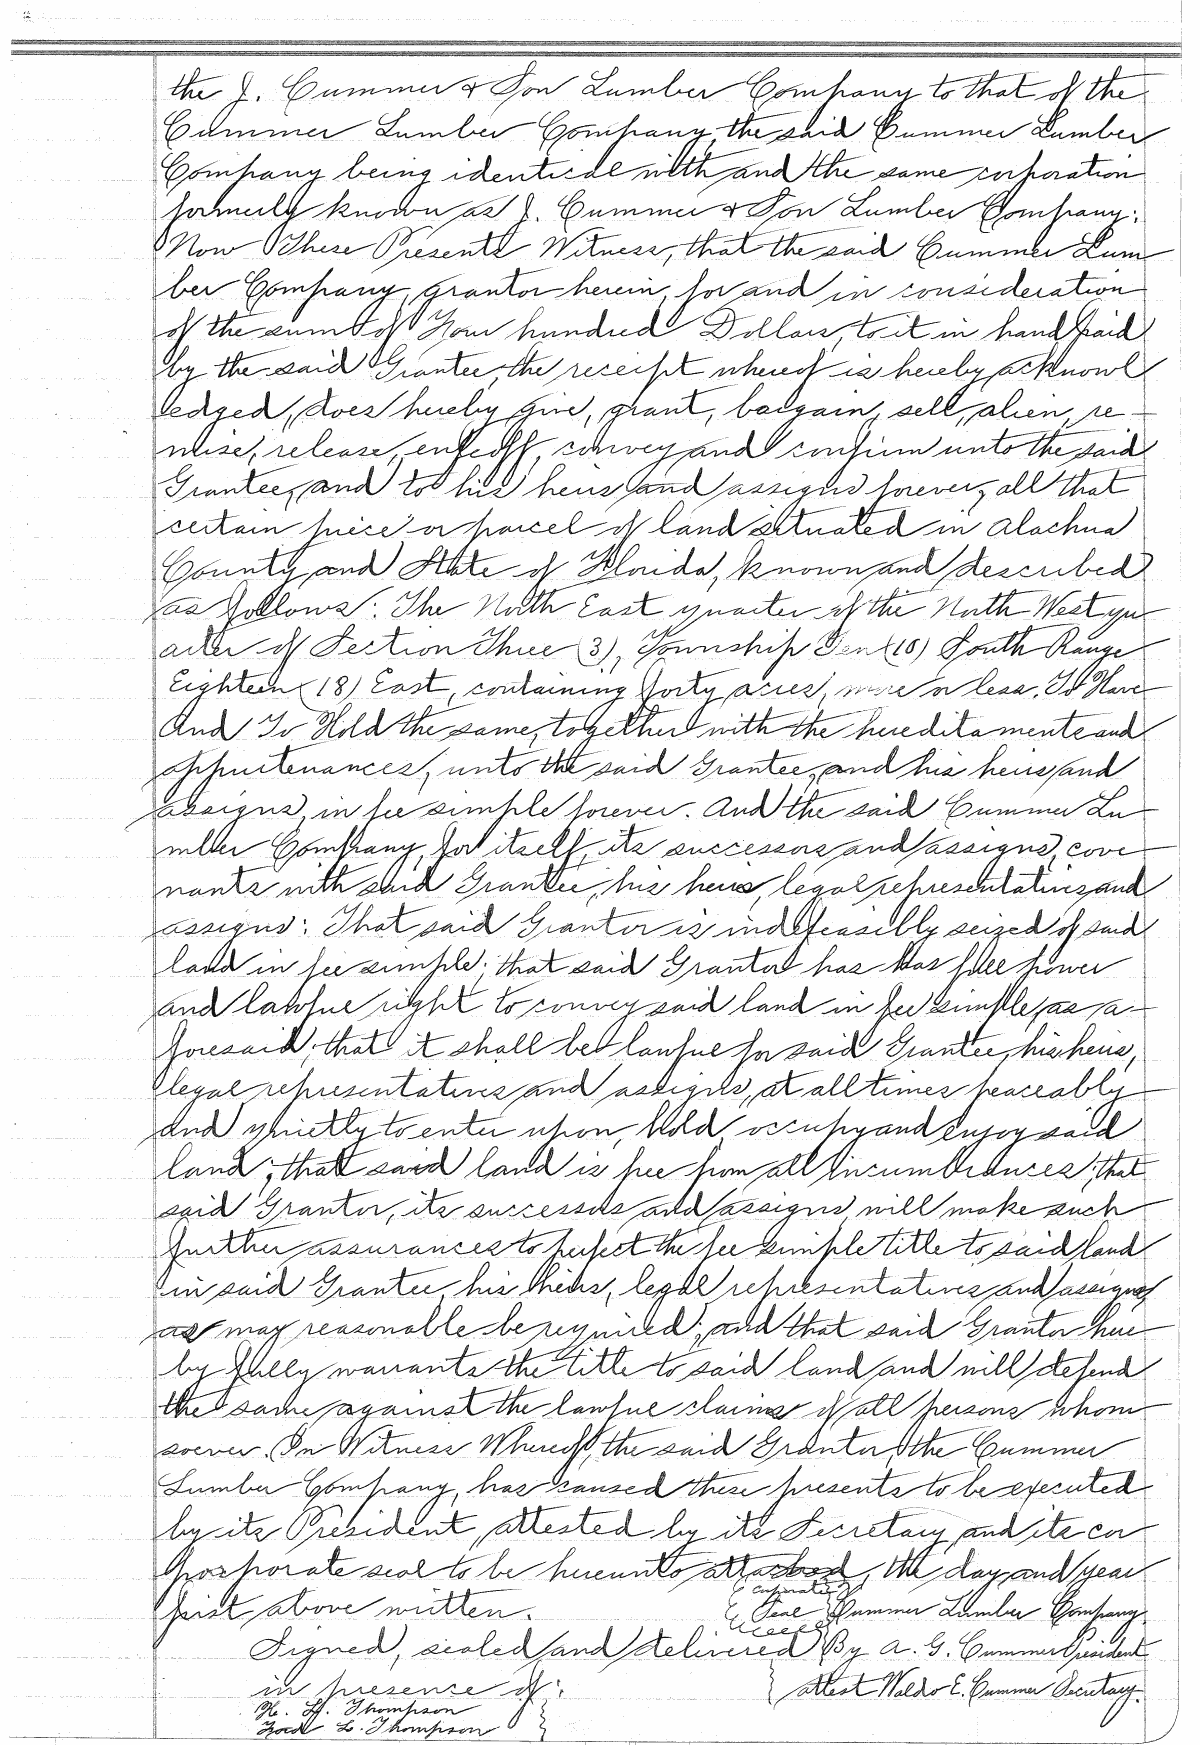 the J. Cummer & Son Lumber Company to that of the
Cummer Lumber Company, the said Cummer Lumber
Company being identical with and the same corporation
formerly known as J. Cummer & Son Lumber Company:
Now These Presents Witness, that the said Cummer Lum
ber Company, grantor herein, for and in consideration
of the sum of Four hundred Dollars, to it in hand paid
by the said Grantee, the receipt whereof is hereby acknowl
edged, does hereby give, grant, bargain, sell, alien, re-
mise, release, enfeoff, convey and confirm unto the said
Grantee, and to his heirs and assigns forever, all that
certain piece or parcel of land situated in Alachua
County and State of Florida, known and described
as follows: The North East quarter of the North West qu
arter of Section Three (3), Township Ten (10) South Range
Eighteen (18) East, containing forty acres, more or less. To Have
And To Hold the same, together with the hereditaments and
appurtenances, unto the said Grantee, and his heirs and
assigns, in fee simple forever. And the said Cummer Lu
mber Company, for itself, its successors and assigns, cove
nants with said Grantee, his heirs, legal representatives and
assigns: That said Grantor is indefeasibly seized of said
land in fee simple; that said Grantor has has full power
and lawful right to convey said land in fee simple, as a-
foresaid; that it shall be lawful for said Grantee, his heirs,
legal representatives and assigns, at all times peaceably
and quietly to enter upon, hold, occupy and enjoy said
land; that said land is free from all incumbrances; that
said Grantor, its successors and assigns, will make such
further assurances to perfect the fee simple title to said land
in said Grantee, his heirs, legal representatives and assigns
as may reasonable be required; and that said Grantor here
by fully warrants the title to said land and will defend
the same against the lawful claims of all persons whom
soever. In Witness Whereof, the said Grantor, the Cummer
Lumber Company, has caused these presents to be executed
by its President, attested by its Secretary and its cor
porporate seal to be hereunto attached, the day and year
first above written.
Corporate
Seal Cummer Lumber Company
Signed, sealed and delivered By A. G. Cummer President
in presence of: attest Waldo E. Cummer Secretary.
H. L. Thompson
L. Thompson